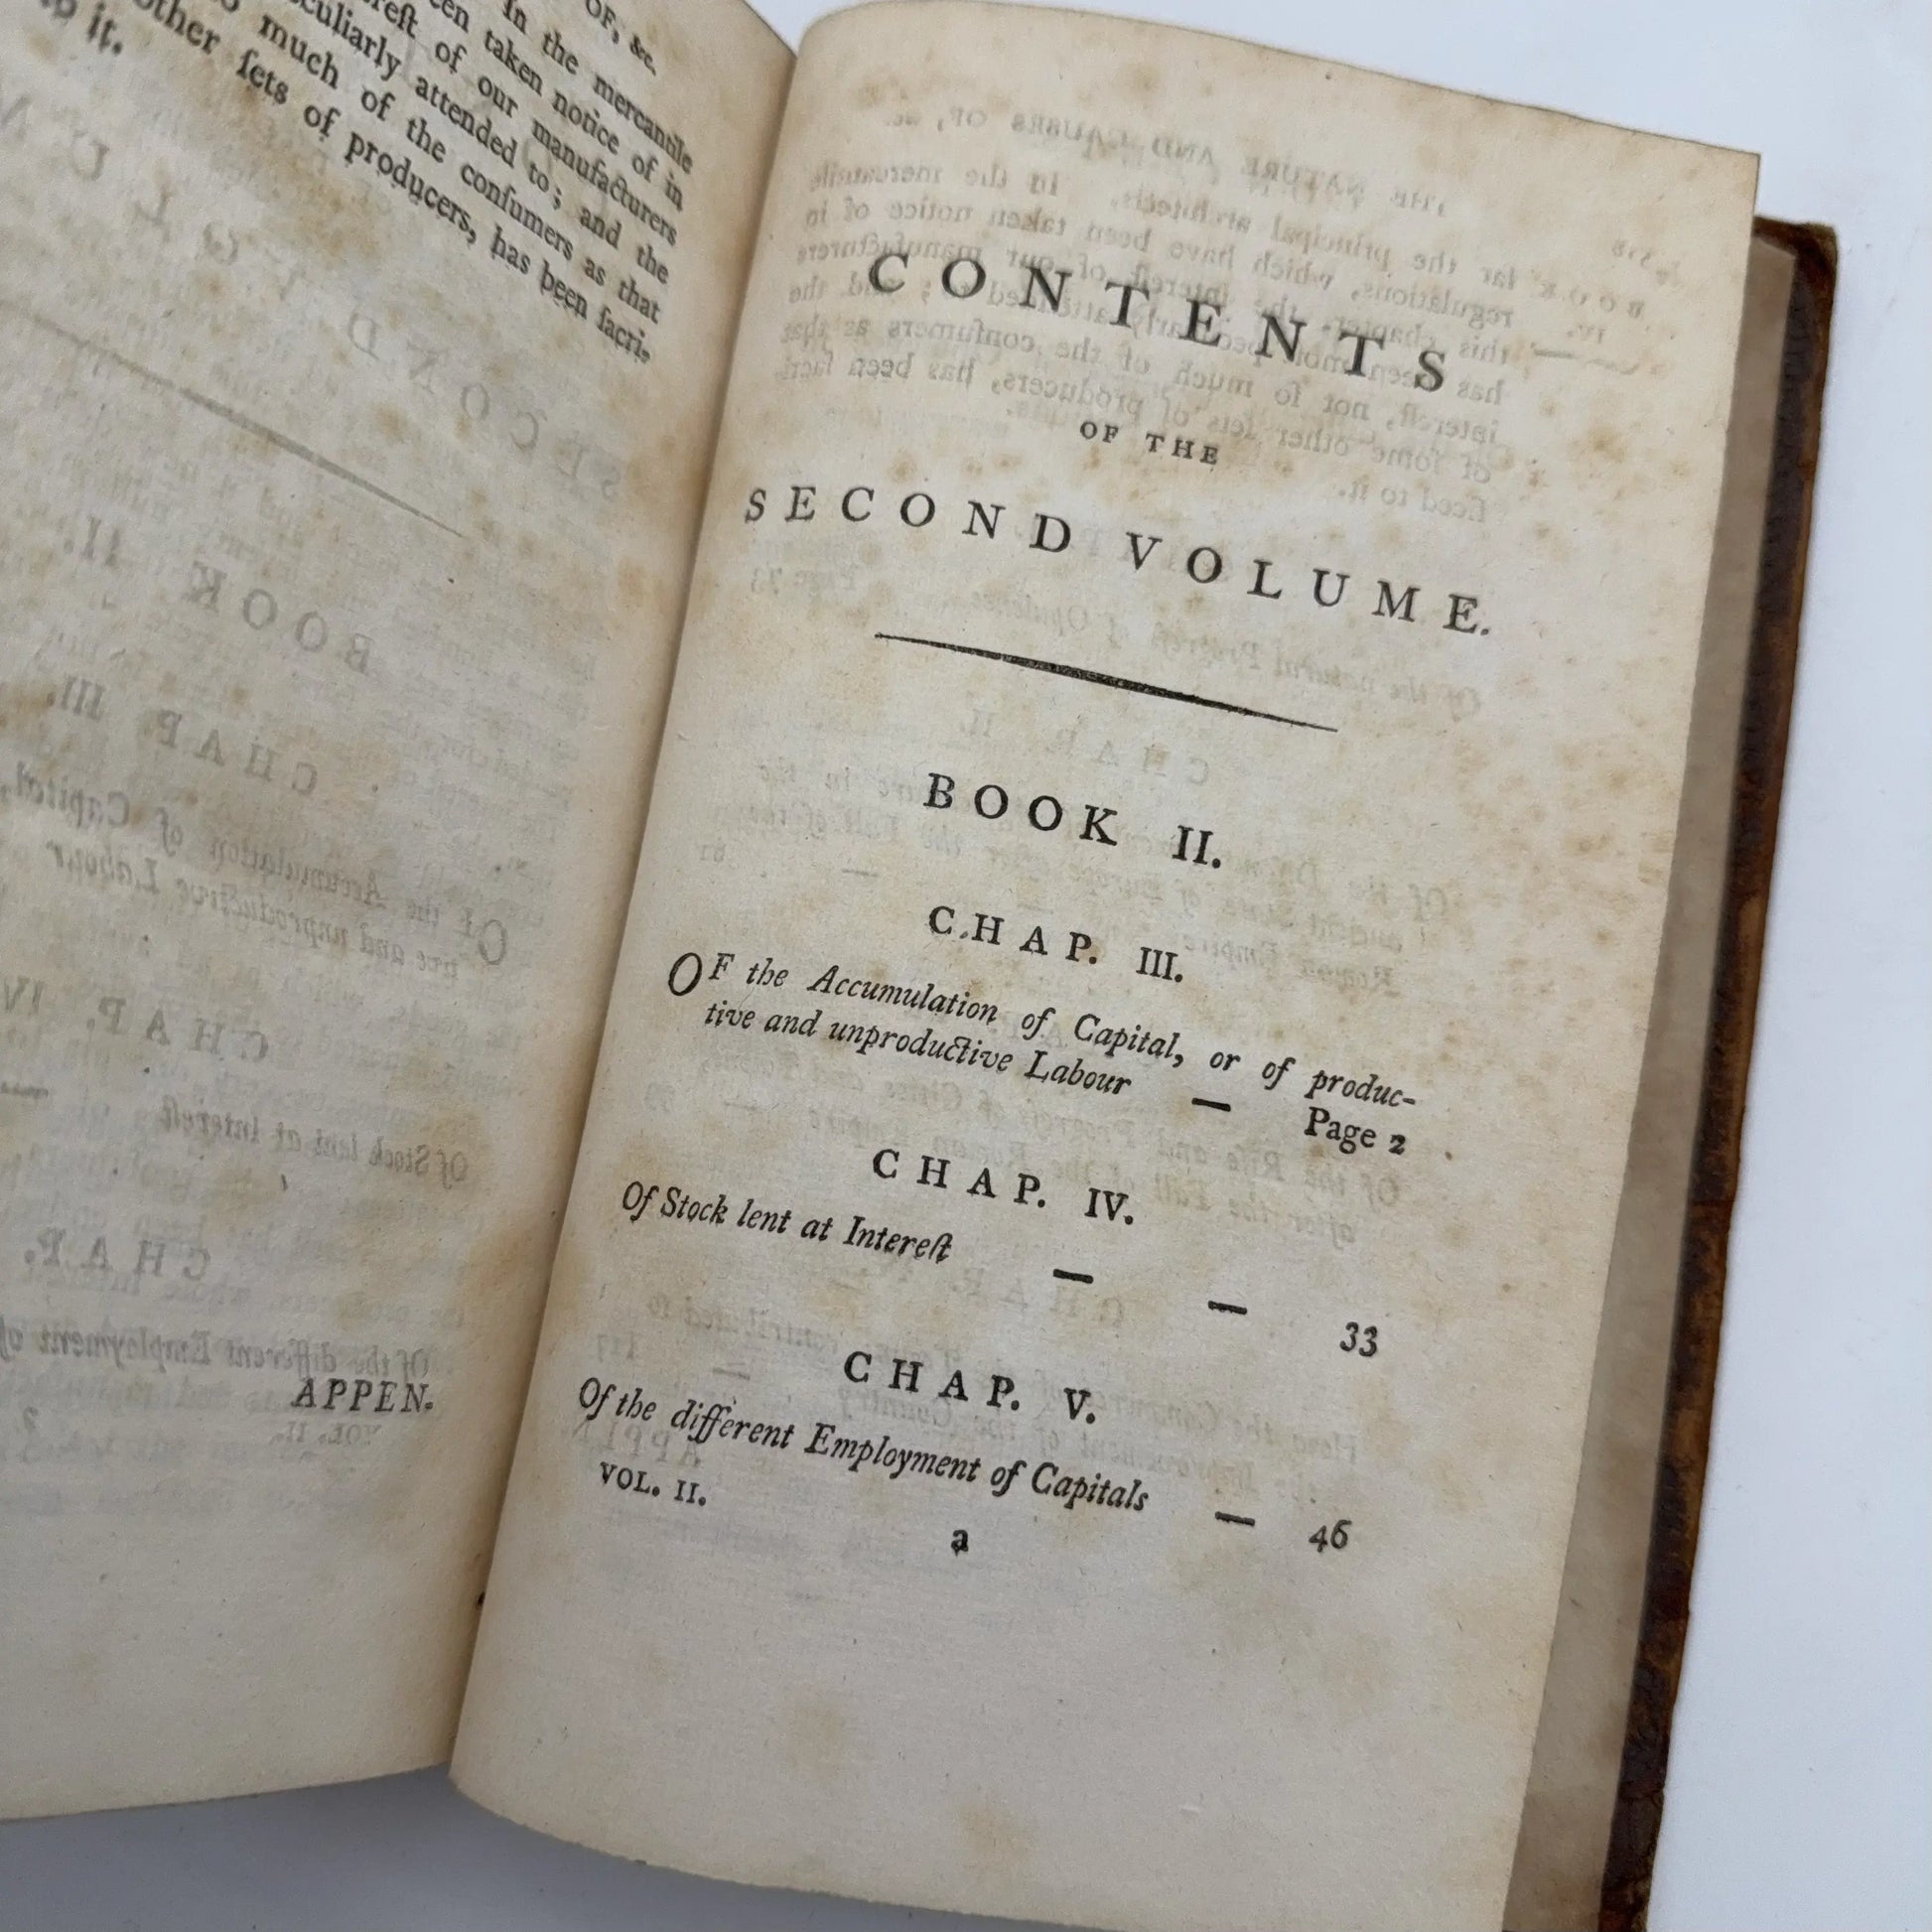 OF, &c.
In the mercantile
een taken notice of in
rest of our manufacturers
culiarly attended to; and the
much of the conſumers as that
other ſets of producers, has been ſacri-
it.
APPEN-
CONTENTS
OF THE
SECOND VOLUME.
BOOK II.
CHAP. III.
OF the Accumulation of Capital, or of produc-
tive and unproductive Labour — Page 2
CHAP. IV.
Of Stock lent at Intereſt — — 33
CHAP. V.
Of the different Employment of Capitals — 46
VOL. II.
a